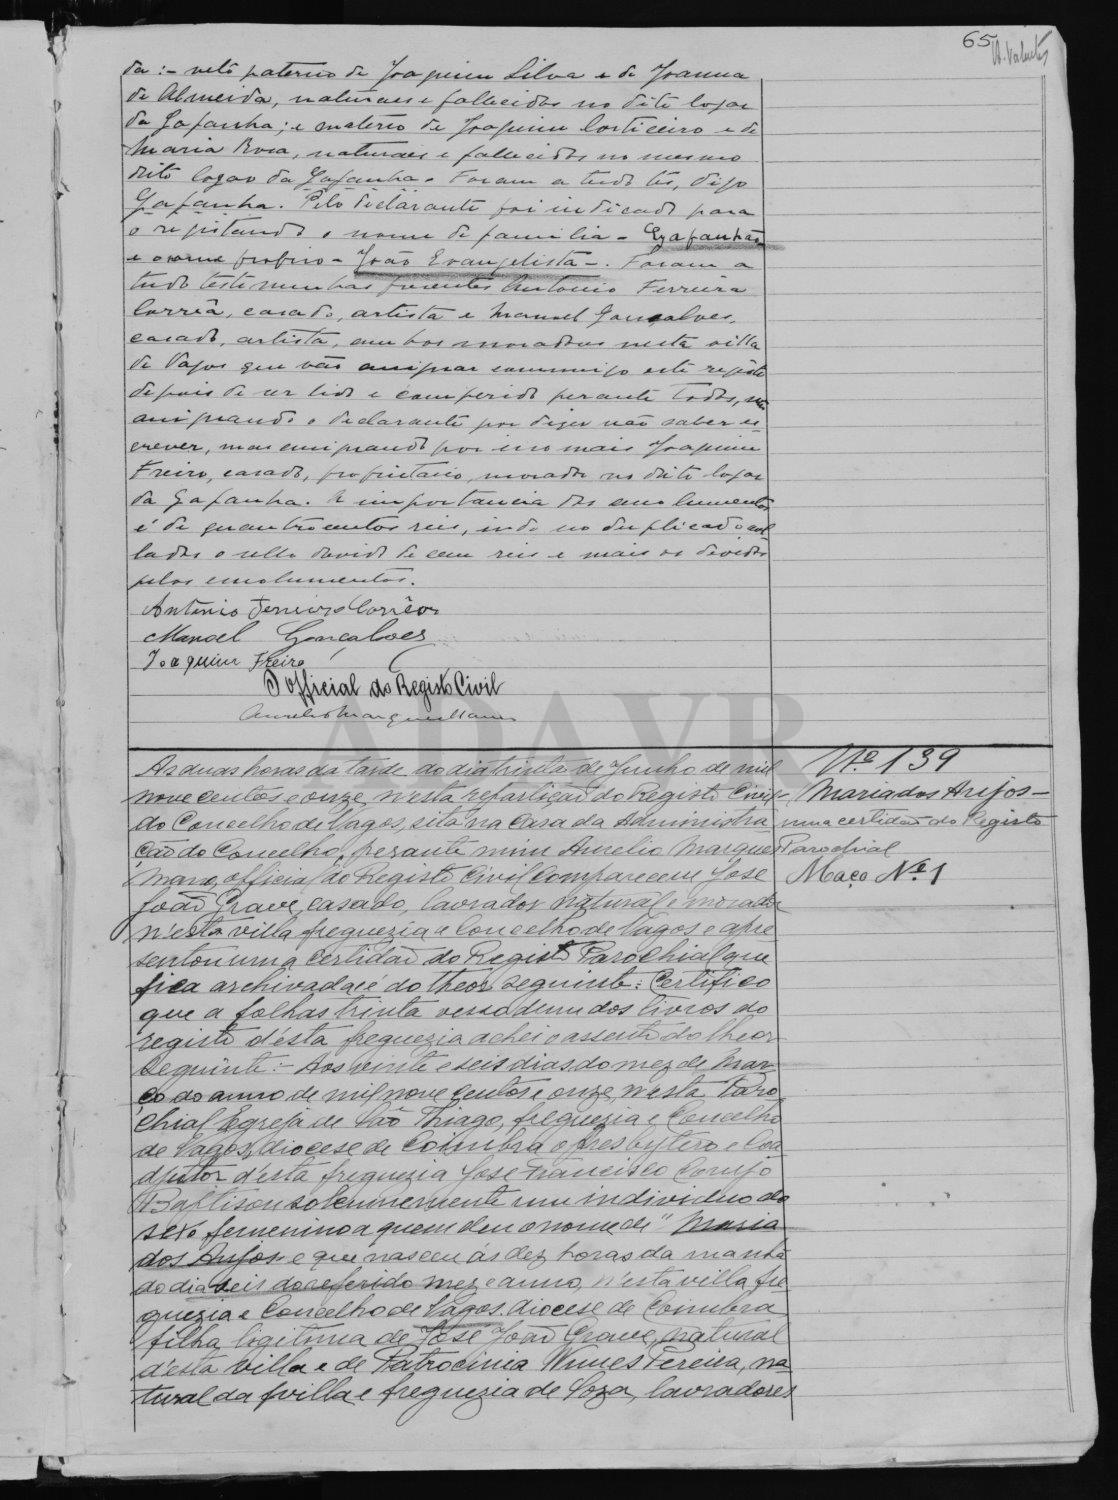 65
da :- neto paterno de Joaquim Silva e de Joanna
de Almeida, naturaes e fallecidos no dito logar
da Gafanha; e materno de Joaquim Corticeiro e de
Maria Rosa, naturaes e fallecidos no mesmo
dito logar da Gafanha. Foram a tudo tes, digo
Gafanha. Pelo declarante foi indicado para
o registando o nome de familia - Gafanhão
e o nome proprio - João Evangelista -. Foram a
tudo testimunhas presentes Antonio Ferreira
Corrêa, casado, artista e Manuel Gonçalves,
casado, artista, ambos moradores nesta villa
de Vagos que vão assignar commigo este registo
depois de ser lido e comferido perante todos, não
assignando o declarante por dizer não saber es
crever, mas assignando por isso mais Joaquim
Freire, casado, proprietario, morador no dito logar
da Gafanha. A importancia dos emolumentos
é de quatrocentos reis, indo no duplicado col
lados o sello devido de cem reis e mais os devidos
pelos emolumentos.
Antonio Ferreira Corrêa
Manoel Gonçalves
Joaquim Freire
O official do Registo Civil
Aurelio Marques Mano
ADAVR
As duas horas da tarde do dia trinta de Junho de mil
nove centos e onze, n'esta repartição do Registo Civil
do Concelho de Vagos, sita na Casa da Administra
ção do Concelho, perante mim Aurelio Marques
Mano, official do Registo Civil compareceu José
João Grave, casado, lavrador natural e morador
n'esta villa freguezia e Concelho de Vagos e apre
sentou uma certidão do Registo Parochial que
fica archivada e é do theor seguinte: Certifico
que a folhas trinta verso de um dos livros do
registo d'esta freguezia achei o assento do theor
seguinte :- Aos vinte e seis dias do mez de Mar
ço do anno de mil nove centos e onze, n'esta Paro
chial Egreja de São Thiago, freguezia e Concelho
de Vagos, diocese de Coimbra o presbytero e Coa
djutor d'esta freguezia José Francisco Corujo
Baptisou solemnemente um individuo do
sexo femenino a quem deu o nome de "Maria
dos Anjos e que nasceu ás dez horas da manhã
do dia seis do referido mez e anno, n'esta villa fre
guezia e Concelho de Vagos. diocese de Coimbra
filha legitima de José João Grave, natural
d'esta villa e de Patrocinia Nunes Pereira, na
tural da villa e freguezia de Soza, lavradores
Nº 139
Maria dos Anjos -
uma certidão do Registo
Parochial
Maço Nº 1